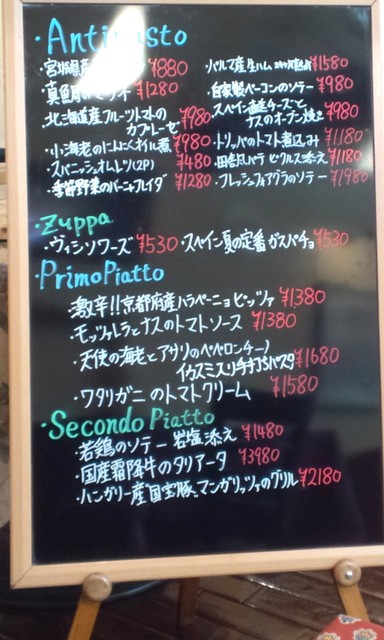 ・Antipasto
・宮城県産 ¥880
・真鯛の ¥1280
・北海道産フルーツトマトの
カプレーゼ ¥980
・小海老のにんにくオイル煮 ¥980
・スパニッシュオムレツ(2P) ¥480
・季節野菜のバーニャフレイダ ¥1280
・パルマ産生ハム ¥1580
・自家製ベーコンのソテー ¥980
・スペイン産チーズと
ナスのオーブン焼き ¥980
・トリッパのトマト煮込み ¥1180
・田舎風パテ ピクルス添え ¥1180
・フレッシュフォアグラのソテー ¥1980
・Zuppa
・ヴィシソワーズ ¥530 ・スペイン夏の定番 ガスパチョ ¥530
・PrimoPiatto
・激辛!!京都府産ハラペーニョピッツァ ¥1380
・モッツァレラとナスのトマトソース ¥1380
・天使の海老とアサリのペペロンチーノ
イカスミ入り手打ちパスタ ¥1680
・ワタリガニのトマトクリーム ¥1580
・Secondo Piatto
・若鶏のソテー 岩塩添え ¥1480
・国産霜降牛のタリアータ ¥3980
・ハンガリー産国宝豚、マンガリッツァのグリル ¥2180